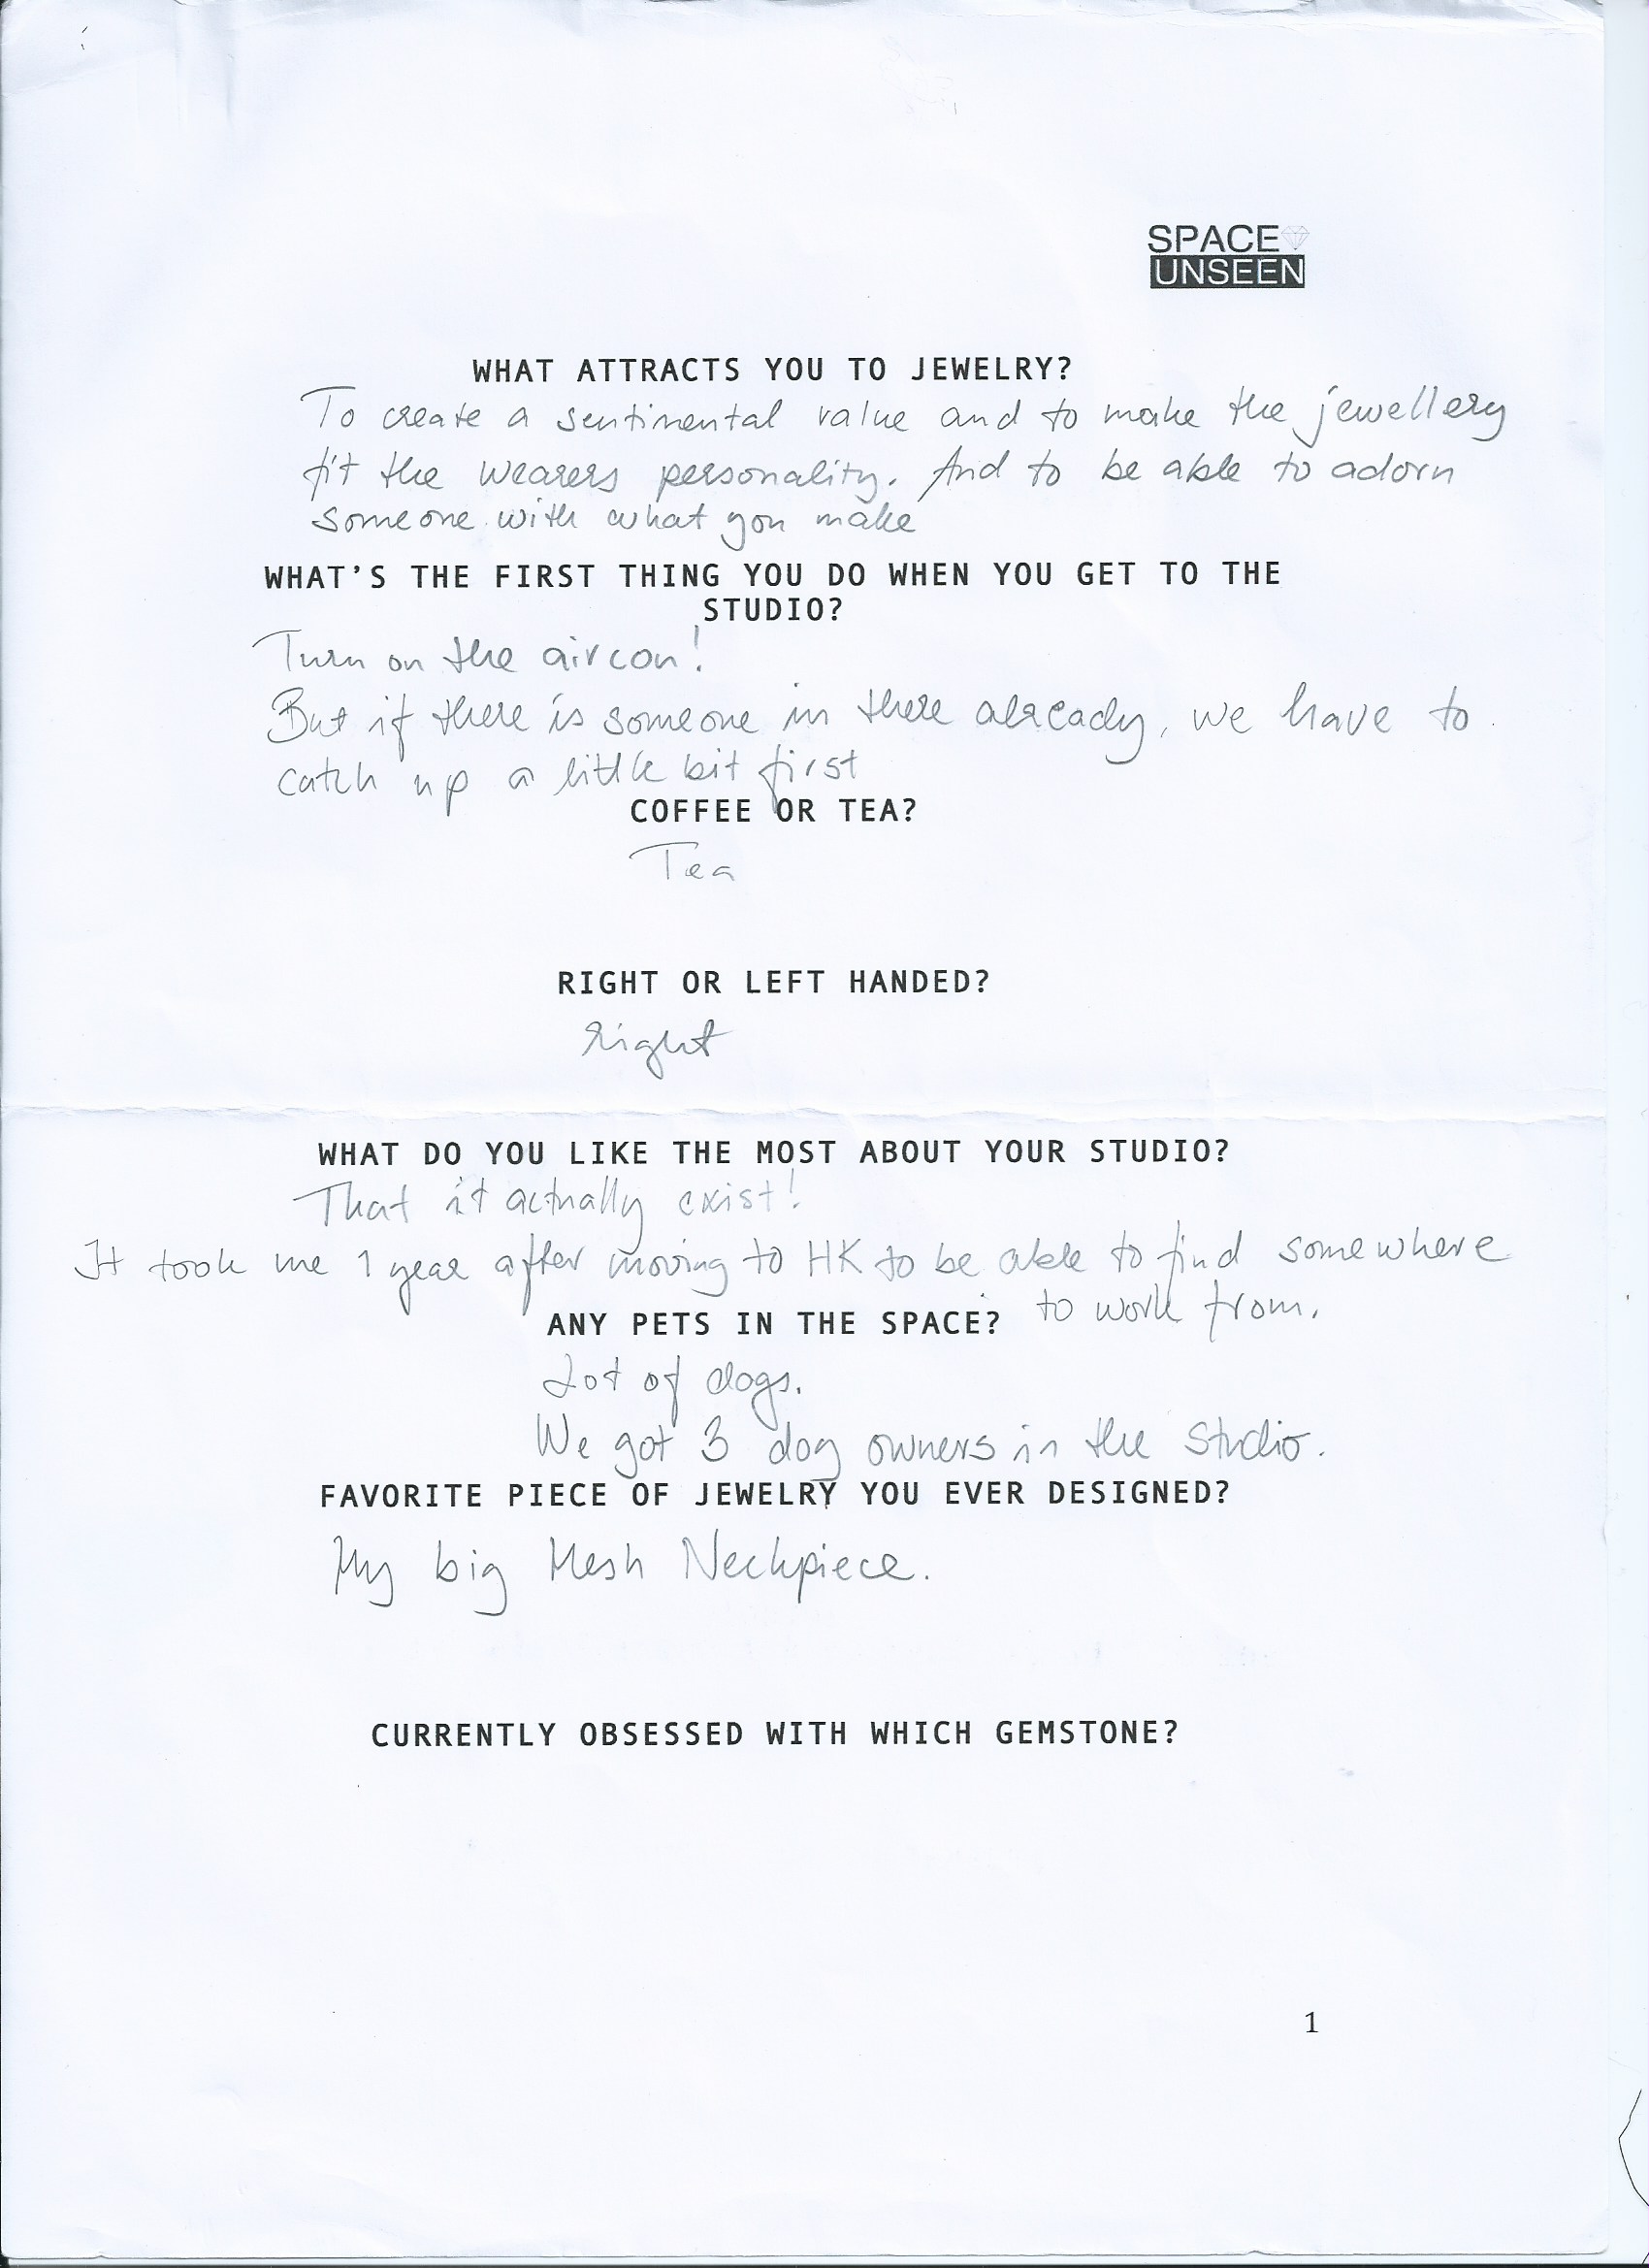 SPACE
UNSEEN
WHAT ATTRACTS YOU TO JEWELRY?
To create a sentimental value and to make the jewellery
fit the wearers personality. And to be able to adorn
someone with what you make
WHAT'S THE FIRST THING YOU DO WHEN YOU GET TO THE
STUDIO?
Turn on the aircon!
But if there is someone in there already, we have to
catch up a little bit first
COFFEE OR TEA?
Tea
RIGHT OR LEFT HANDED?
Right
WHAT DO YOU LIKE THE MOST ABOUT YOUR STUDIO?
That it actually exist!
It took me 1 year after moving to HK to be able to find somewhere
to work from.
ANY PETS IN THE SPACE?
Lot of dogs.
We got 3 dog owners in the studio.
FAVORITE PIECE OF JEWELRY YOU EVER DESIGNED?
My big Mesh Neckpiece.
CURRENTLY OBSESSED WITH WHICH GEMSTONE?
1